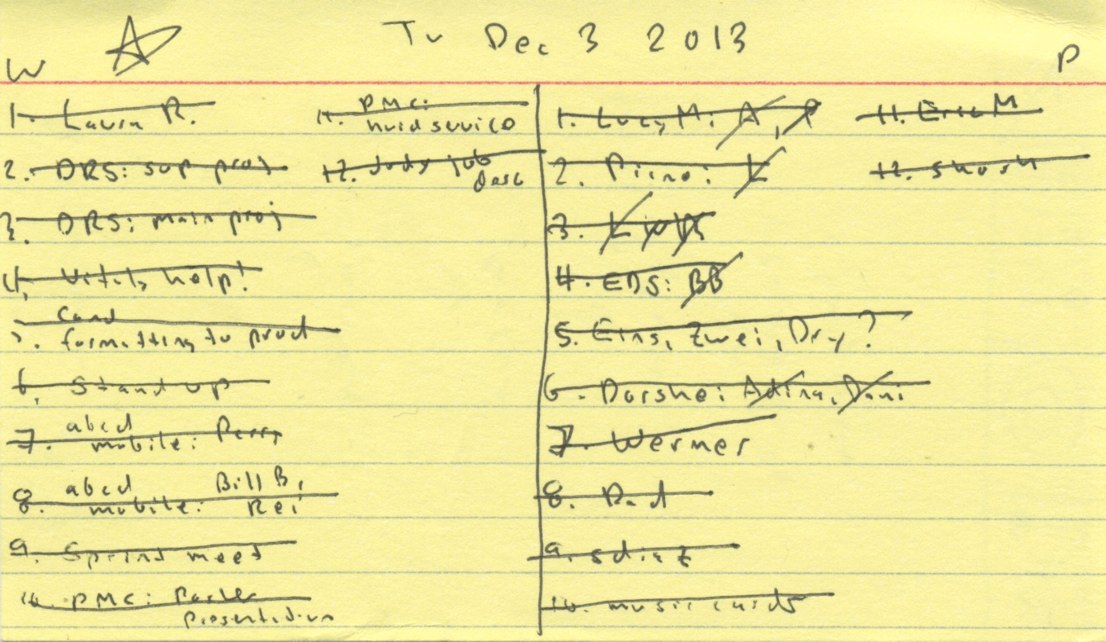 Tu Dec 3 2013
W
P
1. Laura R.
2. DRS: sup proj
3. DRS: main proj
4. Vitals help!
5. Cand
formatting to prod
6. Stand up
7. abcd
mobile: Perry
8. abcd Bill B,
mobile: Rei
9. Sprint meet
10. PMC:
Presentation
11. PMC:
12. Judy job
desc
1. Lucy M: A, P
2. Piano: L
3.
4. EDS: BB
5. Eins, Zwei, Dry?
6. Dorshei: Adina, Dani
7. Wermer
8. Dad
9.
10. music cards
11. Eric M
12. Shosh